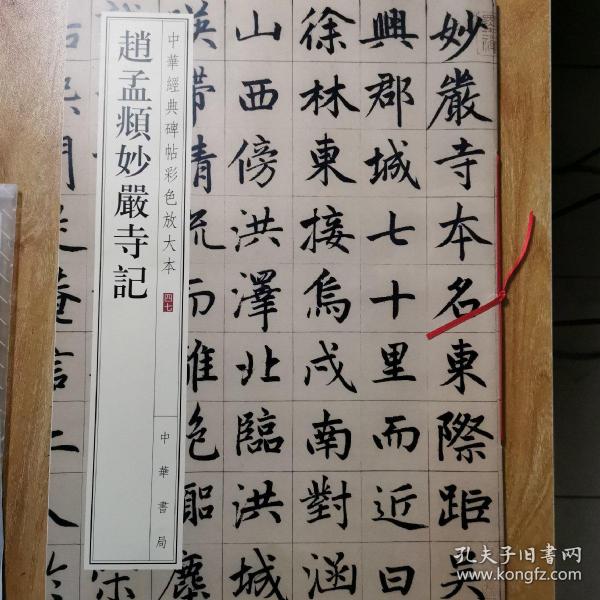 妙嚴寺本名東際距吳
興郡城七十里而近曰
徐林東接烏戍南對涵
山西傍洪澤北臨洪城
帶清流而離絕囂塵
中華經典碑帖彩色放大本
四七
中華書局
趙孟頫妙嚴寺記
孔夫子旧書网
www.kongfz.com